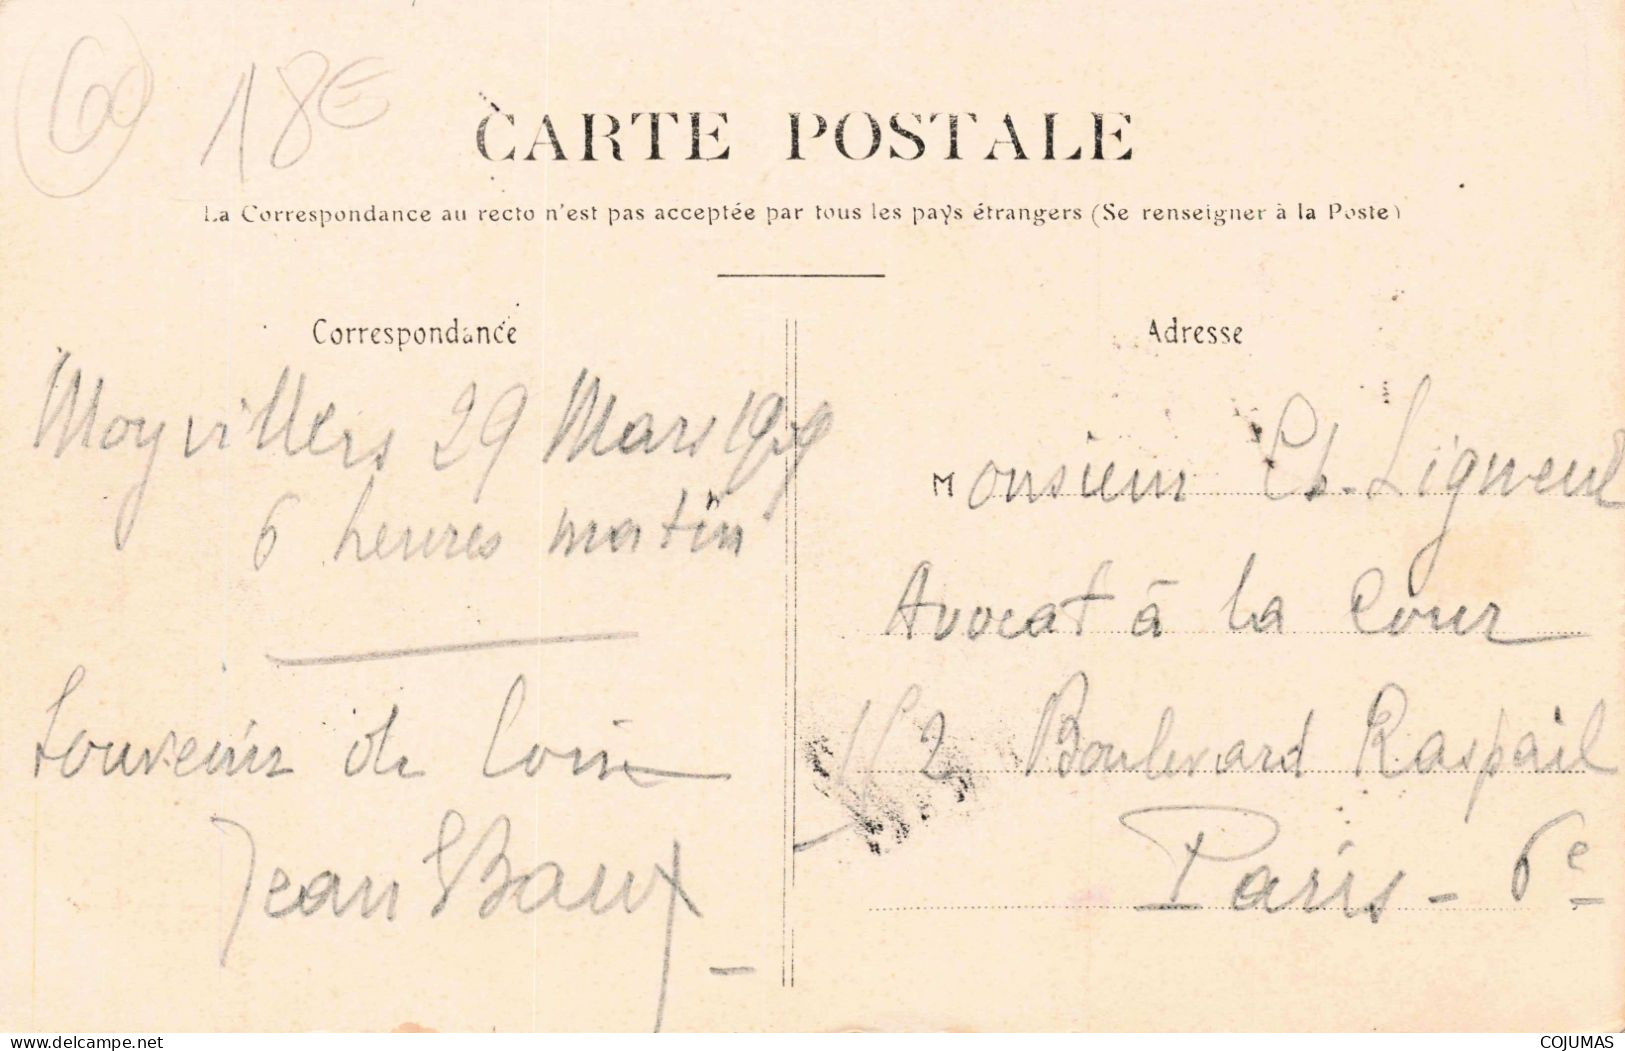 60 18€
CARTE POSTALE
La Correspondance au recto n'est pas acceptée par tous les pays étrangers (Se renseigner à la Poste)
Correspondance
Moyvillers 29 Mars 1909
6 heures matin
Souvenir de loin
Jean Baux
Adresse
Monsieur Ch. Ligneul
Avocat à la Cour
152 Boulevard Raspail
Paris - 6e
delcampe.net
COJUMAS